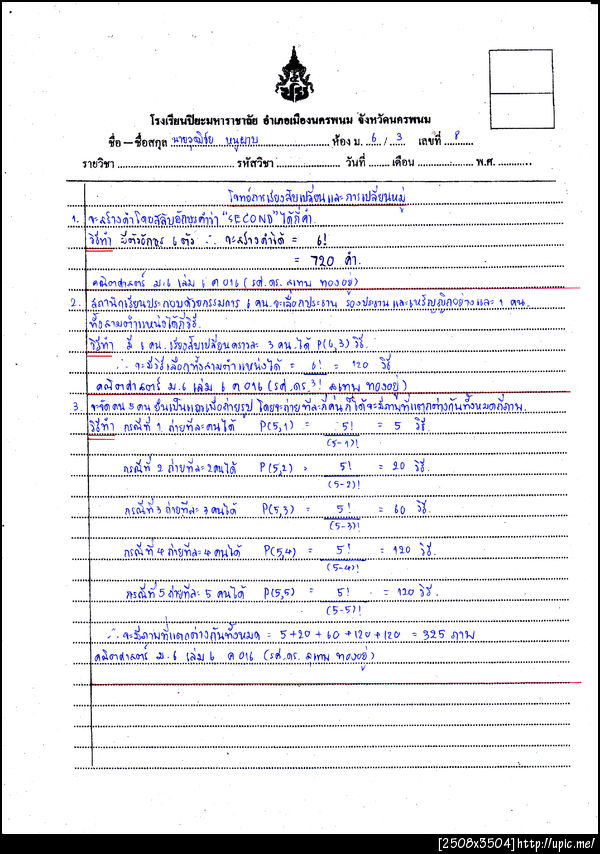 โรงเรียนปิยะมหาราชาลัย อำเภอเมืองนครพนม จังหวัดนครพนม
ชื่อ – ชื่อสกุล นายวุฒิชัย หนูผาบ ห้อง ม. 6 / 3 เลขที่ 8
รายวิชา รหัสวิชา วันที่ เดือน พ.ศ.
โจทย์การเรียงสับเปลี่ยนและการเปลี่ยนหมู่
1. จะสร้างคำโดยสลับอักษรคำว่า "SECOND" ได้กี่คำ.
วิธีทำ มีตัวอักษร 6 ตัว ∴ จะสร้างคำได้ = 6!
= 720 คำ.
คณิตศาสตร์ ม.6 เล่ม 6 ค 016 (รศ.ดร. สุเทพ ทองอยู่)
2. สภานักเรียนประกอบด้วยกรรมการ 6 คน จะเลือกประธาน รองประธานและเหรัญญิกอย่างละ 1 คน.
ทั้งสามตำแหน่งได้กี่วิธี.
วิธีทำ มี 6 คน เรียงสับเปลี่ยนคราวละ 3 คน ได้ P(6,3) วิธี.
∴ จะมีวิธีเลือกทั้งสามตำแหน่งได้ = 6! = 120 วิธี
คณิตศาสตร์ ม.6 เล่ม 6 ค 016 (รศ.ดร. 3! สุเทพ ทองอยู่)
3. จะจัดคน 5 คน ยืนเป็นแถวเพื่อถ่ายรูป โดยจะถ่ายทีละกี่คนก็ได้จะมีภาพที่แตกต่างกันทั้งหมดกี่ภาพ.
วิธีทำ กรณีที่ 1 ถ่ายทีละคนได้ P(5,1) = 5! = 5 วิธี
(5-1)!
กรณีที่ 2 ถ่ายทีละ 2 คนได้ P(5,2) = 5! = 20 วิธี
(5-2)!
กรณีที่ 3 ถ่ายทีละ 3 คนได้ P(5,3) = 5! = 60 วิธี
(5-3)!
กรณีที่ 4 ถ่ายทีละ 4 คนได้ P(5,4) = 5! = 120 วิธี.
(5-4)!
กรณีที่ 5 ถ่ายทีละ 5 คนได้ P(5,5) = 5! = 120 วิธี.
(5-5)!
∴ จะมีภาพที่แตกต่างกันทั้งหมด = 5+20+60+120+120 = 325 ภาพ
คณิตศาสตร์ ม.6 เล่ม 6 ค 016 (รศ.ดร. สุเทพ ทองอยู่)
[2508x3504]http://upic.me/